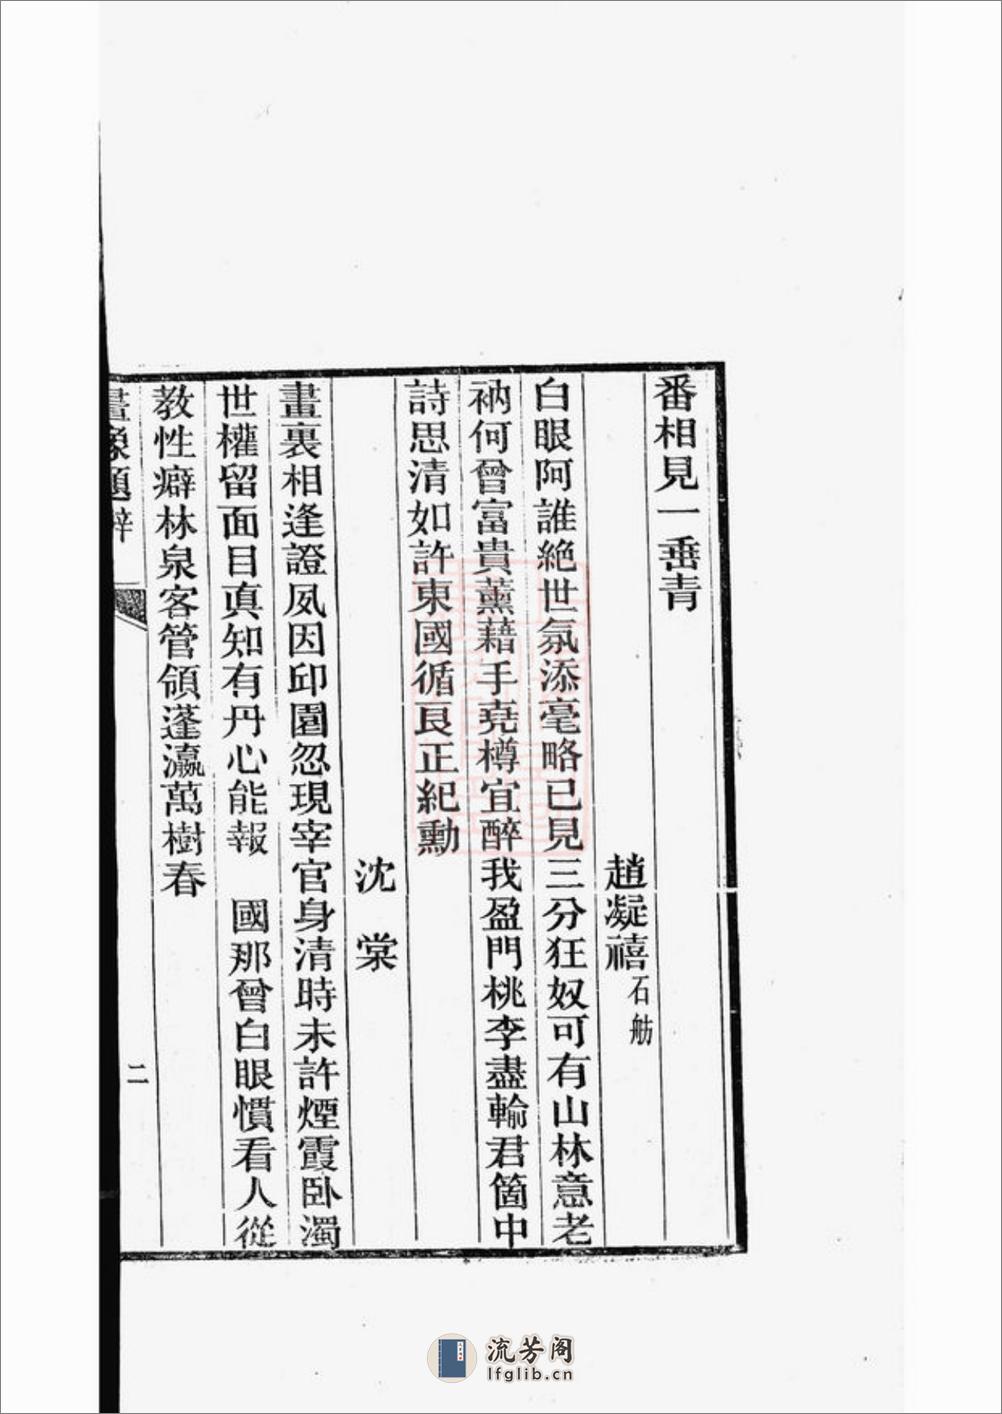 番相見一垂青
趙凝禧石舫
白眼阿誰絶世氛添毫略已見三分狂奴可有山林意老
衲何曾富貴薰藉手堯樽宜醉我盈門桃李盡輸君箇中
詩思清如許東國循良正紀勳
沈棠
畫裏相逢證夙因卬園忽現宰官身清時未許煙霞卧濁
世權留面目真知有丹心能報 國那曾白眼慣看人從
教性癖林泉客管領蓬瀛萬樹春
畫象題辭
二
流芳阁
lfglib.cn